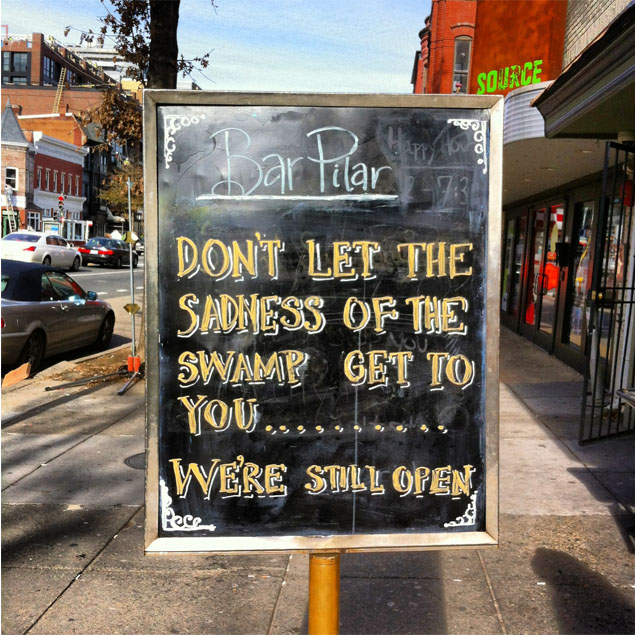 SOURCE
Bar Pilar
Happy Hour
DON'T LET THE
SADNESS OF THE
SWAMP GET TO
YOU...........
WE'RE STILL OPEN